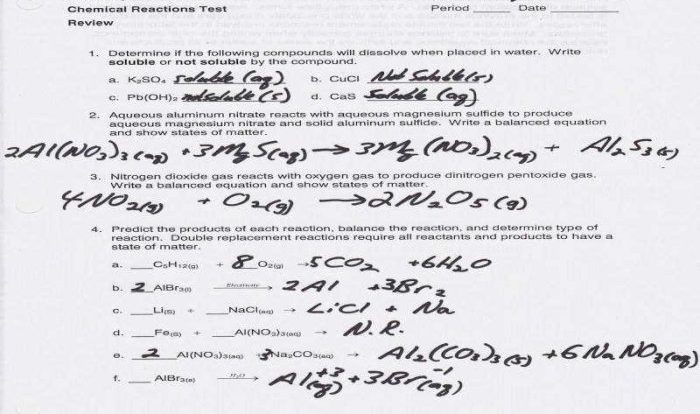 Chemical Reactions Test Period _____ Date _____
Review
1. Determine if the following compounds will dissolve when placed in water. Write
soluble or not soluble by the compound.
a. K₂SO₄ soluble (aq) b. CuCl Not Soluble(s)
c. Pb(OH)₂ not soluble (s) d. CaS Soluble (aq)
2. Aqueous aluminum nitrate reacts with aqueous magnesium sulfide to produce
aqueous magnesium nitrate and solid aluminum sulfide. Write a balanced equation
and show states of matter.
2Al(NO₃)₃(aq) + 3MgS(aq) → 3Mg(NO₃)₂(aq) + Al₂S₃(s)
3. Nitrogen dioxide gas reacts with oxygen gas to produce dinitrogen pentoxide gas.
Write a balanced equation and show states of matter.
4NO₂(g) + O₂(g) → 2N₂O₅(g)
4. Predict the products of each reaction, balance the reaction, and determine type of
reaction. Double replacement reactions require all reactants and products to have a
state of matter.
a. ___C₅H₁₂(g) + 8 O₂(g) → 5CO₂ + 6H₂O
b. 2 AlBr₃(l) Electricity → 2Al + 3Br₂
c. ___Li(s) + ___NaCl(aq) → LiCl + Na
d. ___Fe(s) + ___Al(NO₃)₃(aq) → N.R.
e. 2 Al(NO₃)₃(aq) + 3Na₂CO₃(aq) → Al₂(CO₃)₃(s) + 6NaNO₃(aq)
f. ___ AlBr₃(s) H₂O → Al⁺³(aq) + 3Br⁻¹(aq)